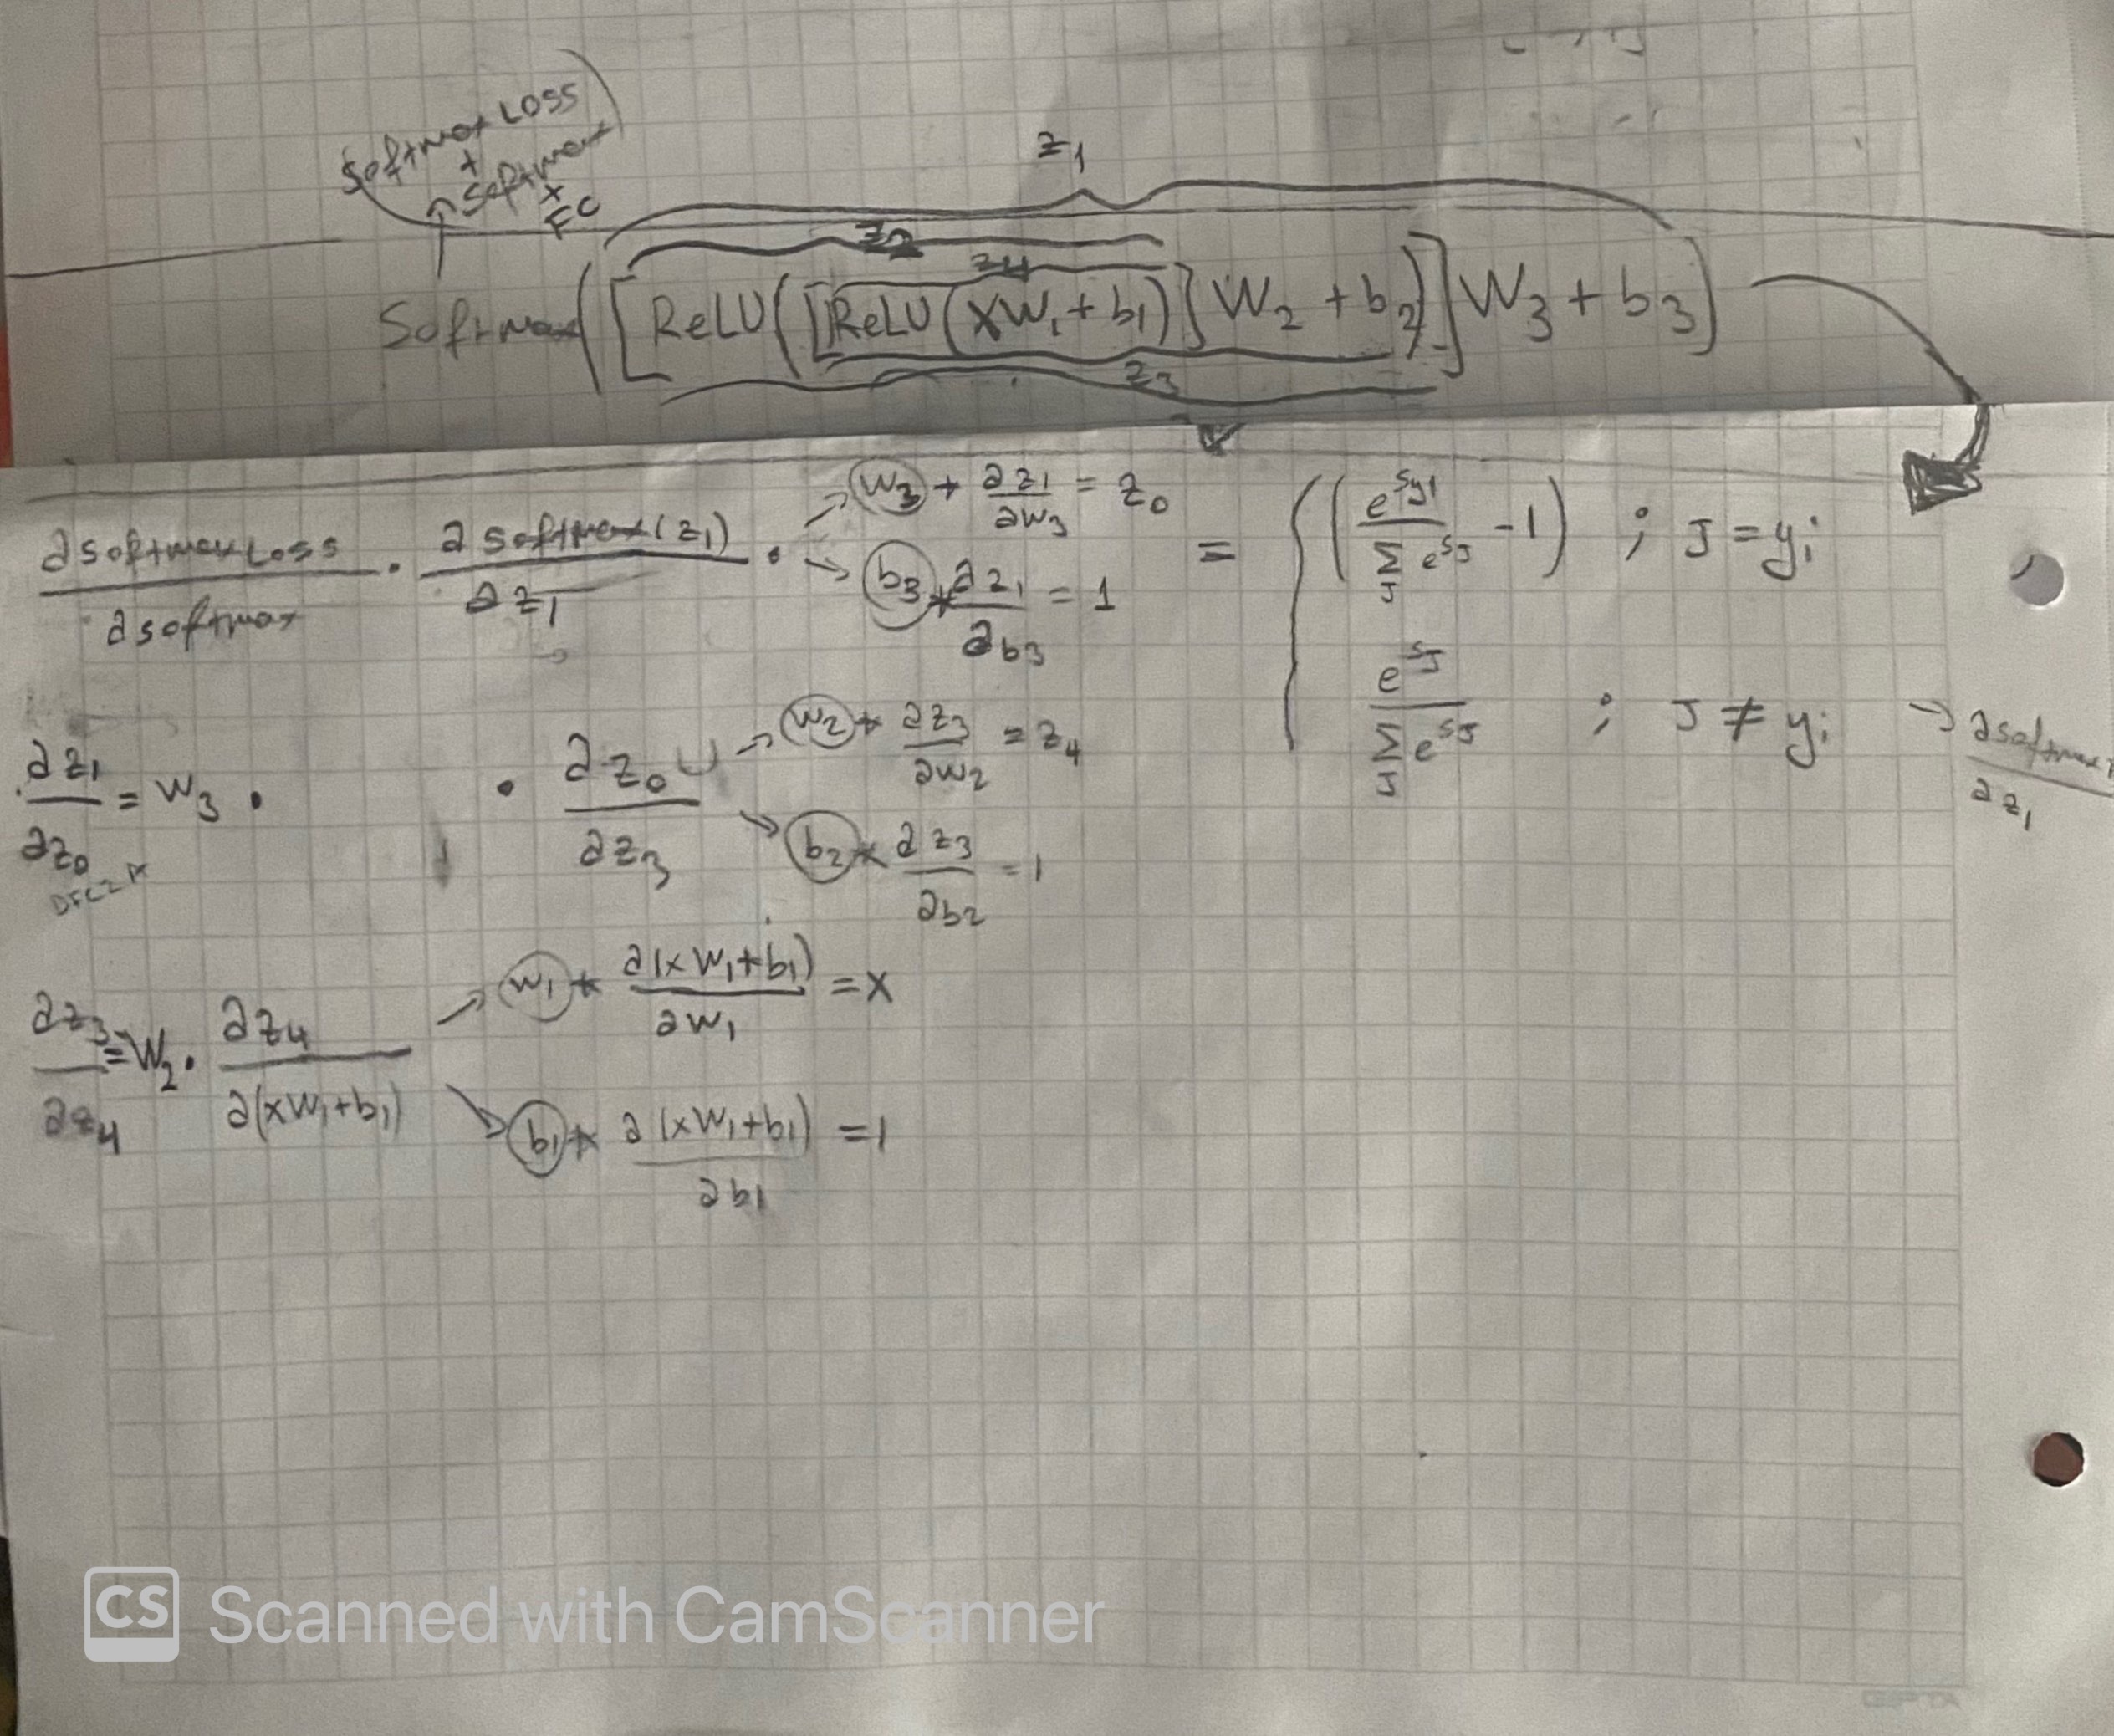 Softmax Loss
+
Softmax
+
FC
z₁
z₂
z₄
Softmax([ReLU([ReLU(XW₁ + b₁)]W₂ + b₂)]W₃ + b₃)
z₃
∂softmaxLoss/∂softmax · ∂softmax(z₁)/∂z₁ · → W₃ * ∂z₁/∂W₃ = z₀
→ b₃ * ∂z₁/∂b₃ = 1
= { (e^{Sy1}/∑_J e^{SJ} - 1) ; J = yᵢ
e^{SJ}/∑_J e^{SJ} ; J ≠ yᵢ → ∂softmax/∂z₁
∂z₁/∂z₀ = W₃ · · ∂z₀/∂z₃ → W₂ * ∂z₃/∂W₂ = z₄
→ b₂ * ∂z₃/∂b₂ = 1
∂z₃/∂z₄ = W₂ · ∂z₄/∂(XW₁+b₁) → W₁ * ∂(XW₁+b₁)/∂W₁ = X
→ b₁ * ∂(XW₁+b₁)/∂b₁ = 1
CS Scanned with CamScanner